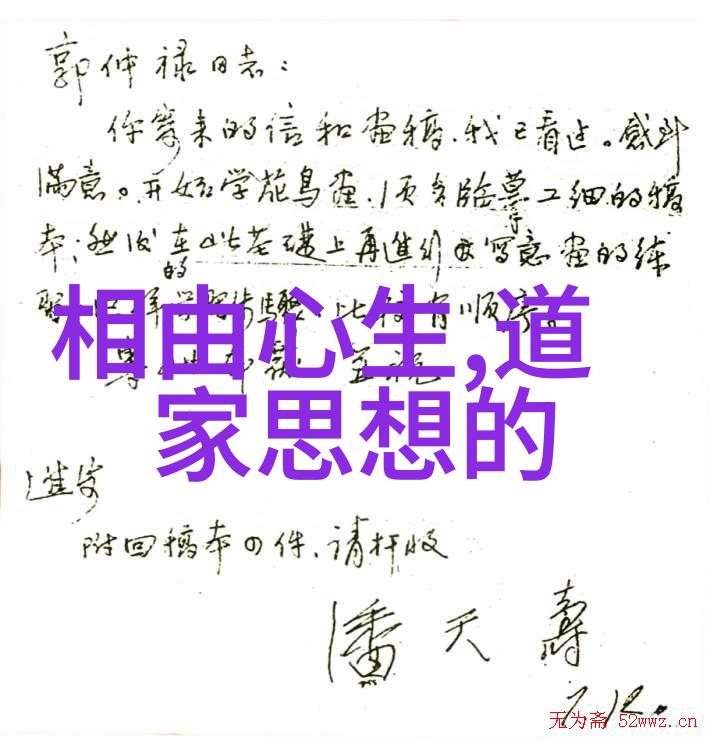 郭仲禄同志：
你寄来的信和画稿，我已看过。感到
满意。开始学花鸟画，须多临摹工细的稿
本；然后在此基础上再进行写意画的练
习
的
顺序。
相由心生,道
家思想的
进安
附回稿本の件，请检收
潘天寿
7.12.
无为斋 52wwz.cn